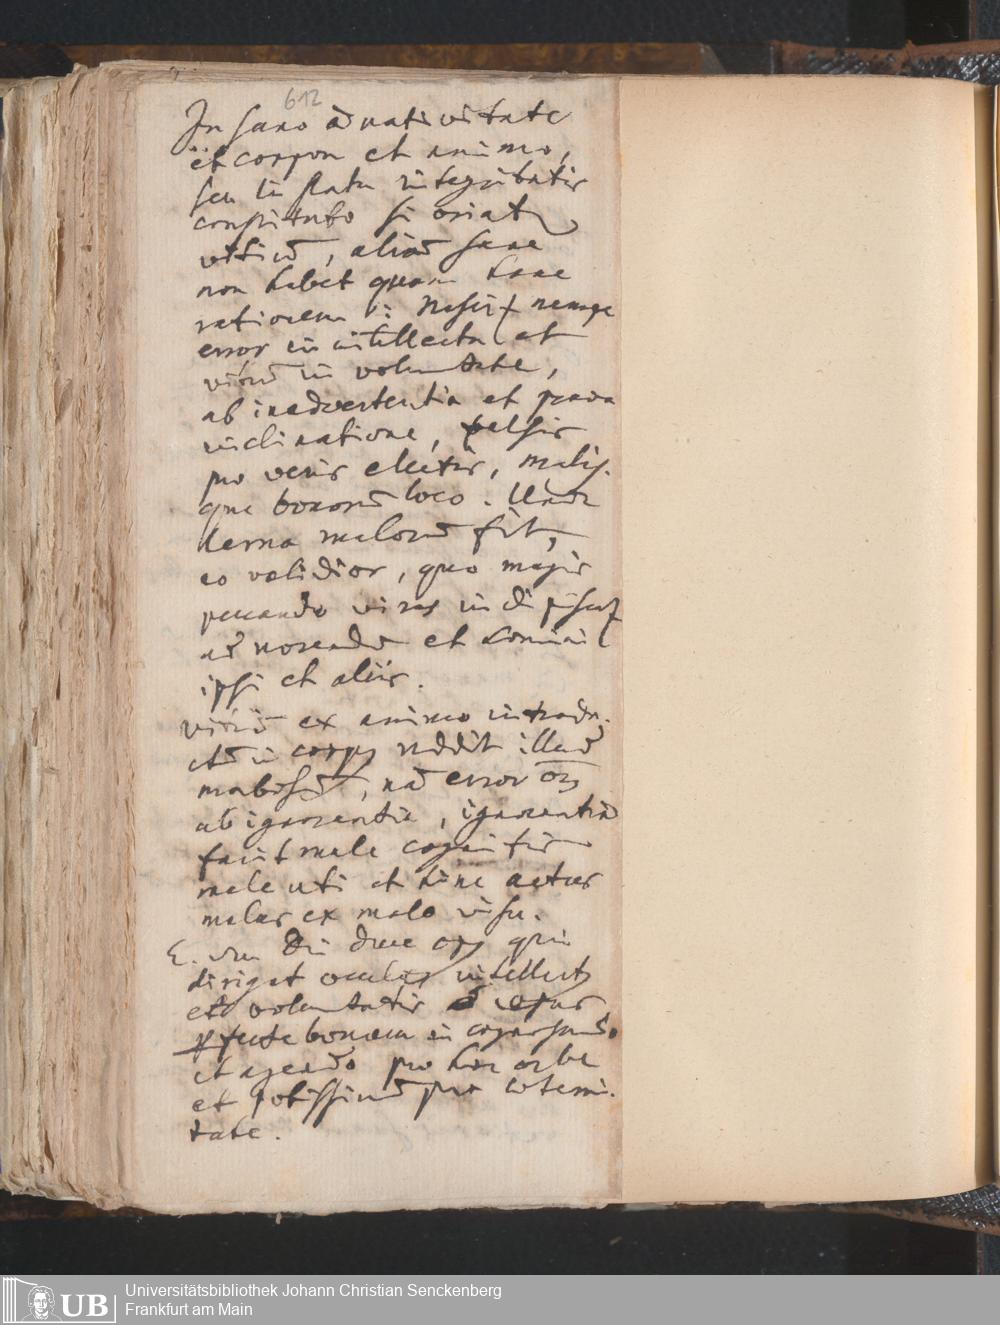 612
In sano a nativitate
et corpore et animo,
seu in statu integritatis
constituto si oriatur
vitiū, aliā sane
non habet quam hanc
rationem : Nascitur nempe
error in intellectu et
vitiū in voluntate,
ab inadvertentia et prava
inclinatione, falsis
pro veris electis, malis-
que bonorū loco. Unde
Lerna malorū fit,
eo validior, quo magis
peccando vires indipiscitur
ad nocendū et homini
ipsi et aliis.
vitiū ex animo introdu-
ctū in corpus reddit illud
morbosū, nā error
ab ignorantia, ignorantia
facit male cognitis
male uti et hinc actus
malus ex malo visu.
E. duce opus qui
dirigat oculos intellectus
et voluntatis
bonum in
et agendo pro hoc orbe
et potissimū pro
tate.
Universitätsbibliothek Johann Christian Senckenberg
Frankfurt am Main
UB